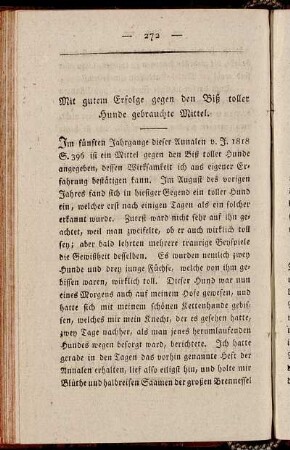 — 272 —
Mit gutem Erfolge gegen den Biß toller
Hunde gebrauchte Mittel.
Im fünften Jahrgange dieser Annalen v. J. 1818
S. 396 ist ein Mittel gegen den Biß toller Hunde
angegeben, dessen Wirksamkeit ich aus eigener Er-
fahrung bestätigen kann. Im August des vorigen
Jahres fand sich in hiesiger Gegend ein toller Hund
ein, welcher erst nach einigen Tagen als ein solcher
erkannt wurde. Zuerst ward nicht sehr auf ihn ge-
achtet, weil man zweifelte, ob er auch wirklich toll
sey; aber bald lehrten mehrere traurige Beyspiele
die Gewißheit desselben. Es wurden nemlich zwey
Hunde und drey junge Füchse, welche von ihm ge-
bissen waren, wirklich toll. Dieser Hund war nun
eines Morgens auch auf meinem Hofe gewesen, und
hatte sich mit meinem schönen Kettenhunde gebis-
sen, welches mir mein Knecht, der es gesehen hatte,
zwey Tage nachher, als man jenes herumlaufenden
Hundes wegen besorgt ward, berichtete. Ich hatte
gerade in den Tagen das vorhin genannte Heft der
Annalen erhalten, lief also eiligst hin, und holte mir
Blüthe und halbreifen Saamen der großen Brennessel